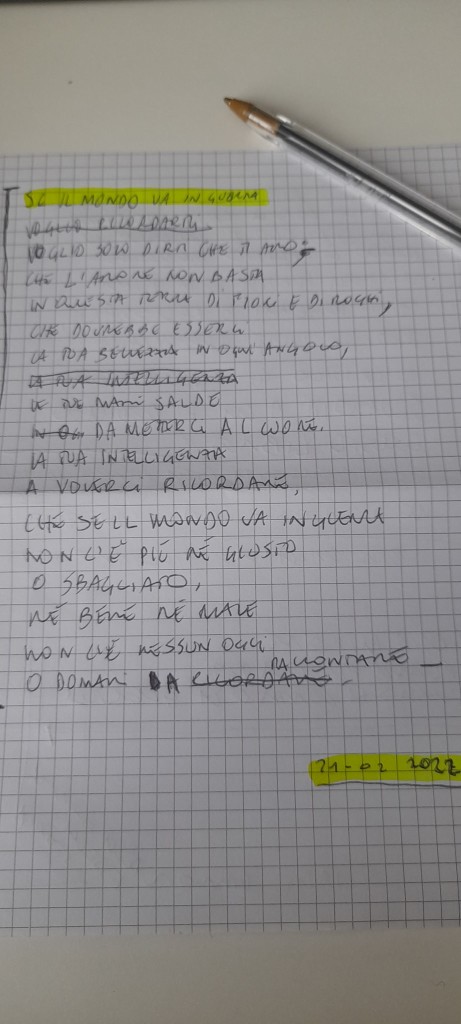 SE IL MONDO VA IN GUERRA
VOGLIO RICORDARTI
VOGLIO SOLO DIRTI CHE TI AMO;
CHE L'AMORE NON BASTA
IN QUESTA TERRA DI FIORI E DI ROGHI,
CHE DOVREBBE ESSERCI
LA TUA BELLEZZA IN OGNI ANGOLO,
LA TUA INTELLIGENZA
LE TUE MANI SALDE
IN OG. DA METTERCI AL CUORE.
LA TUA INTELLIGENZA
A VOLERCI RICORDARE,
CHE SE IL MONDO VA IN GUERRA
NON C'È PIÙ NÉ GIUSTO
O SBAGLIATO,
NÉ BENE NÉ MALE
NON C'È NESSUN OGGI
RACCONTARE
O DOMANI DA RICORDARE.
21-02 2022